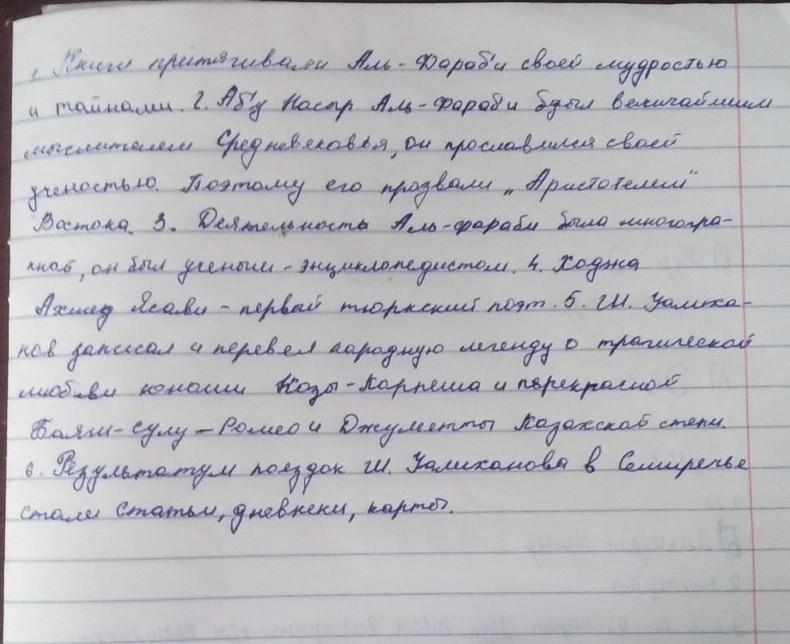 1. Книги притягивали Аль-Фараби своей мудростью
и тайнами. 2. Абу Насыр Аль-Фараби был величайшим
мыслителем Средневековья, он прославился своей
ученостью. Поэтому его прозвали „Аристотелем"
Востока. 3. Деятельность Аль-фараби была многогра-
нной, он был ученым-энциклопедистом. 4. Ходжа
Ахмед Ясави - первый тюркский поэт. 5. Ш. Уалиха-
нов записал и перевел народную легенду о трагической
любви юноши Козы-Карпеша и перекрасной
Баян-сулу - Ромео и Джульетты Казахской степи.
6. Результатум поездок Ш. Уалиханова в Семиречье
стали статьи, дневники, карты.